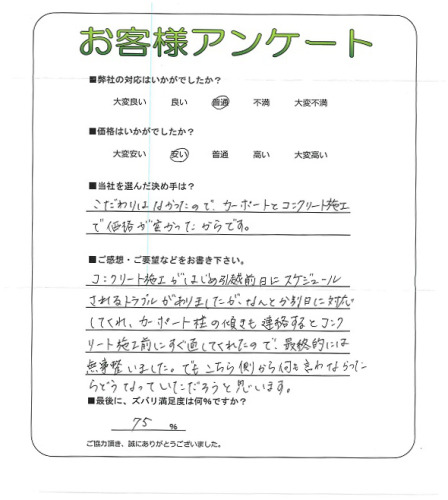 お客様アンケート
■弊社の対応はいかがでしたか？
大変良い 良い 普通 不満 大変不満
■価格はいかがでしたか？
大変安い 安い 普通 高い 大変高い
■当社を選んだ決め手は？
こだわりはなかったので、カーポートとコンクリート施工
で価格が安かったからです。
■ご感想・ご要望などをお書き下さい。
コンクリート施工がはじめ引越前日にスケジュール
されるトラブルがありましたが、なんとか別日に対応
してくれ、カーポート柱の傾きも連絡するとコンク
リート施工前にすぐ直してくれたので、最終的には
無事整いました。でもこちら側から何も言わなかった
らどうなっていただろうと思います。
■最後に、ズバリ満足度は何％ですか？
75 ％
ご協力頂き、誠にありがとうございました。